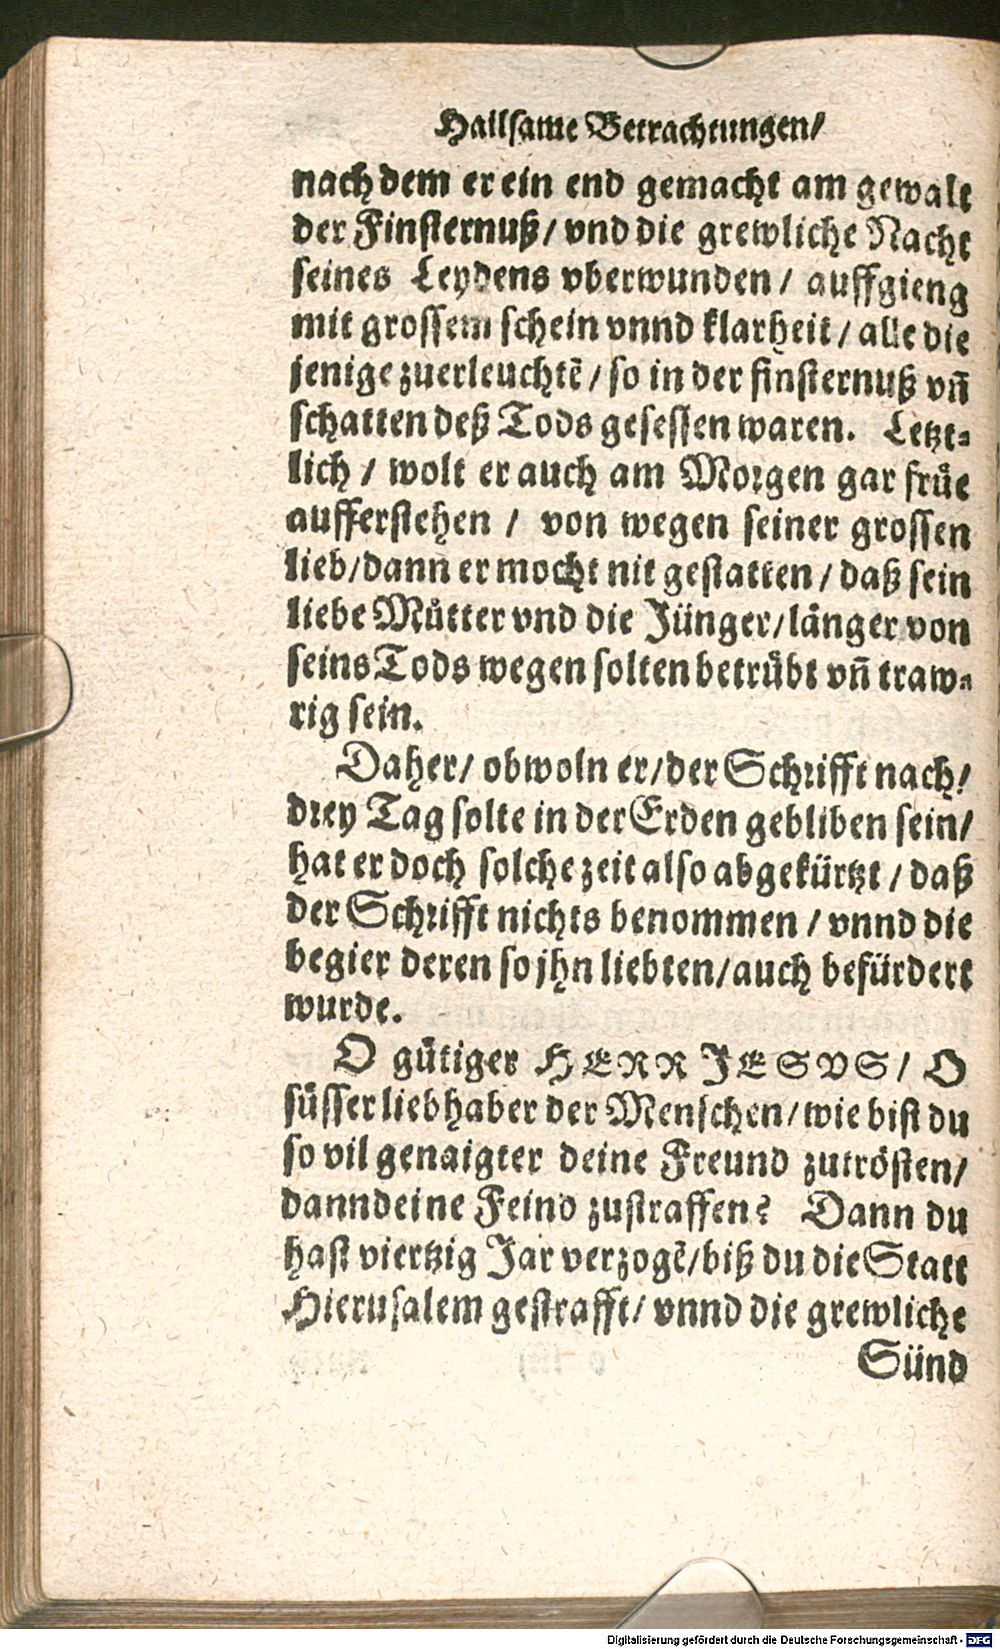 Hailsame Betrachtungen/
nach dem er ein end gemacht am gewalt
der Finsternuß/ vnd die grewliche Nacht
seines Leydens vberwunden/ auffgieng
mit grossem schein vnnd klarheit/ alle die
jenige zuerleuchtē/ so in der finsternuß vñ
schatten deß Tods gesessen waren. Letzt-
lich/ wolt er auch am Morgen gar frůe
aufferstehen/ von wegen seiner grossen
lieb/dann er mocht nit gestatten/ daß sein
liebe Můtter vnd die Jünger/länger von
seins Tods wegen solten betrůbt vñ traw-
rig sein.
Daher/ obwoln er/der Schrifft nach/
drey Tag solte in der Erden gebliben sein/
hat er doch solche zeit also abgekürtzt/ daß
der Schrifft nichts benommen/ vnnd die
begier deren so jhn liebten/auch befürdert
wurde.
O gůtiger HERR JESVS/ O
sůsser liebhaber der Menschen/wie bist du
so vil genaigter deine Freund zutrösten/
dann deine Feind zustraffen? Dann du
hast viertzig Jar verzogē/biß du die Statt
Hierusalem gestrafft/ vnnd die grewliche
Sünd
Digitalisierung gefördert durch die Deutsche Forschungsgemeinschaft - DFG